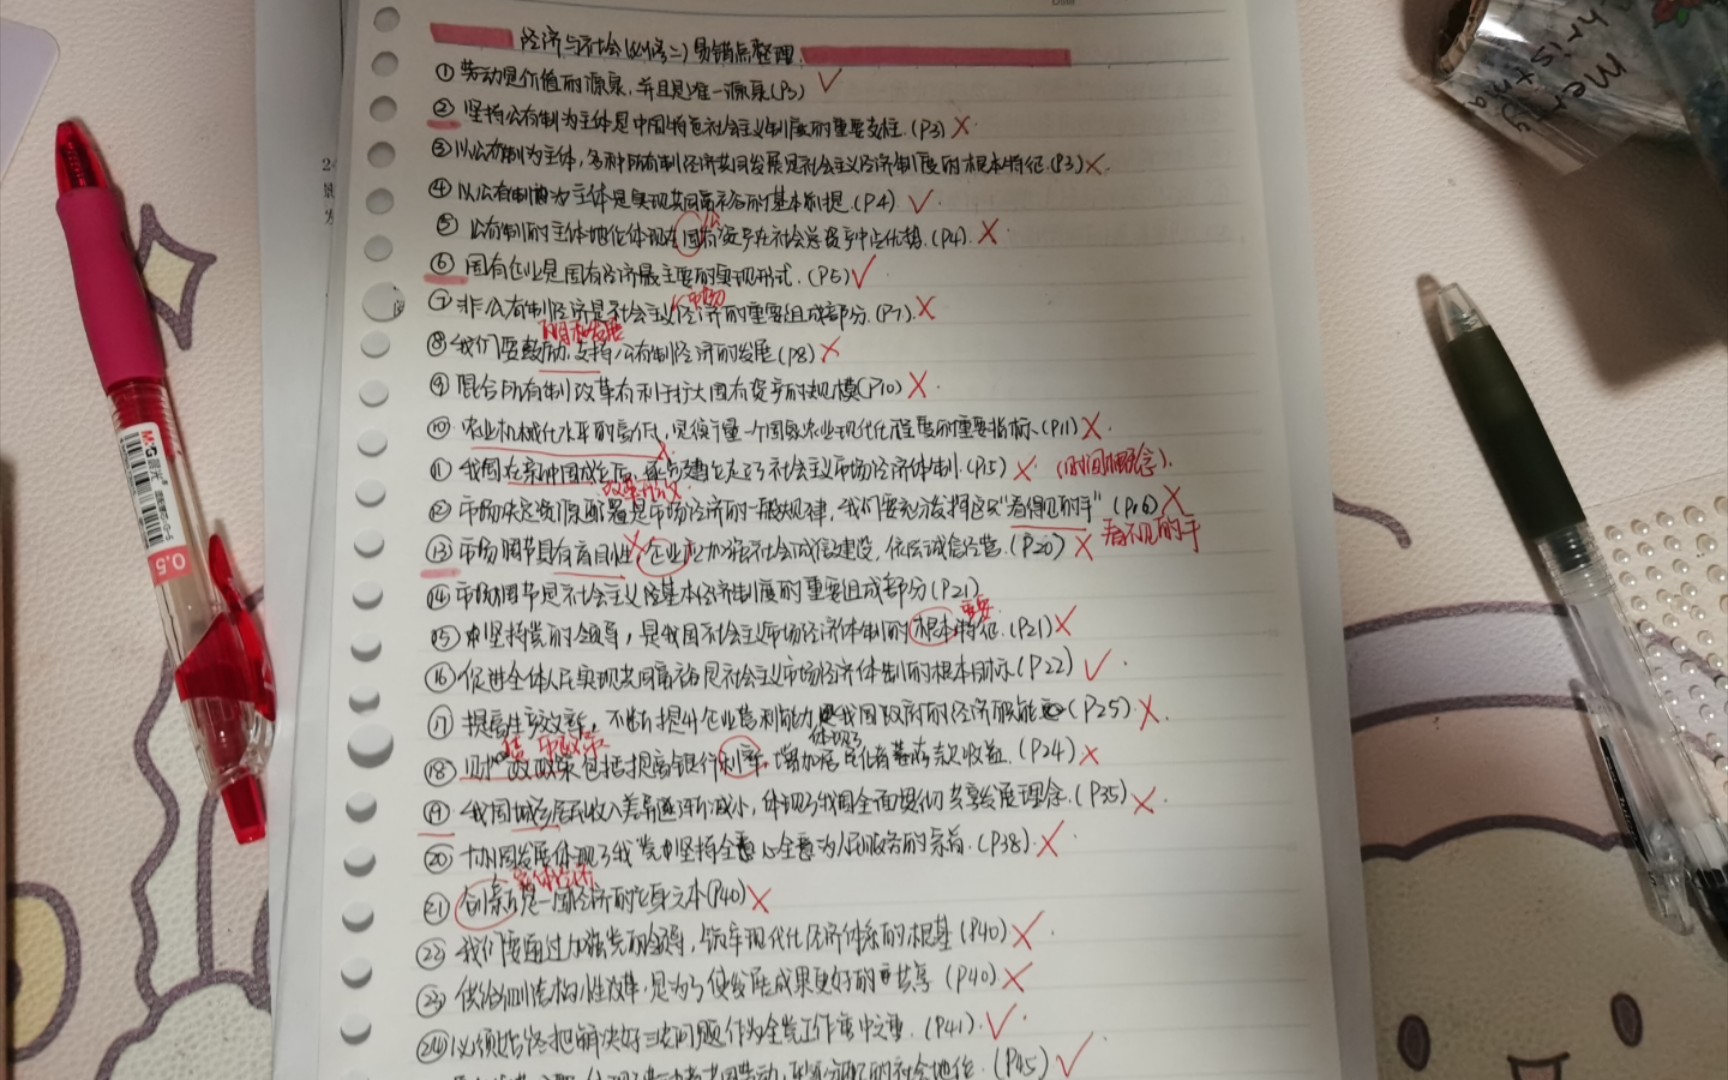 经济与社会(必修二)易错点整理
①劳动是价值的源泉,并且是唯一源泉(P3) ✓
②坚持公有制为主体是中国特色社会主义制度的重要支柱.(P3) ×
③以公有制为主体,多种所有制经济共同发展是社会主义经济制度的根本特征.(P3) ×
④以公有制为主体是实现共同富裕的基本前提.(P4) ✓
公
⑤公有制的主体地位体现在国有资产在社会总资产中占优势.(P4). ×
⑥国有企业是国有经济最主要的实现形式.(P5) ✓
市场
⑦非公有制经济是社会主义经济的重要组成部分.(P7). ×
⑧我们要鼓励,支持公有制经济的发展(P8) ×
⑨混合所有制改革有利于扩大国有资产的规模(P10) ×
⑩农业机械化水平的高低,是衡量一个国家农业现代化程度的重要指标.(P11) ×
⑪我国在新中国成立后,逐步建立起了社会主义市场经济体制.(P15) × (时间概念).
改革开放
⑫市场决定资源配置是市场经济的一般规律,我们要充分发挥这只"看得见的手"(P16) ×
看不见的手
⑬市场调节具有盲目性,企业应加强社会诚信建设,依法诚信经营.(P20) ×
⑭市场调节是社会主义基本经济制度的重要组成部分(P21)
重要
⑮坚持党的领导,是我国社会主义市场经济体制的根本特征.(P21) ×
⑯促进全体人民实现共同富裕是社会主义市场经济体制的根本目标.(P22) ✓
⑰提高生产效率,不断提升企业营利能力是我国政府的经济职能(P25) ×
体现了
货币政策
⑱财政政策包括提高银行利率,增加居民储蓄存款收益.(P24) ×
⑲我国城乡居民收入差异逐渐减小,体现了我国全面贯彻共享发展理念.(P35) ×
⑳发展体现了我党坚持全心全意为人民服务的宗旨.(P38) ×
实体经济
㉑创新是一国经济的立身之本(P40) ×
㉒我们要通过加强党的领导,筑牢现代化经济体系的根基(P40) ×
㉓供给侧结构性改革,是为了使发展成果更好的共享(P40) ×
㉔必须始终把解决好三农问题作为全党工作重中之重.(P41) ✓
(P45) ✓
M&G 晨光
0.5
Merry
Christma